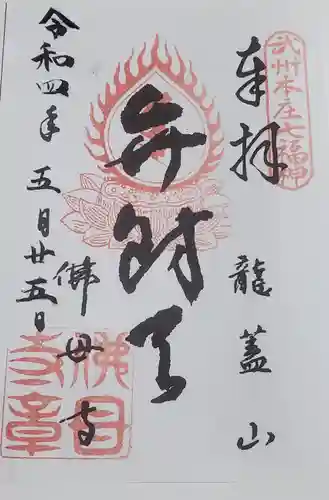 武州本庄七福神
奉拝
龍蓋山
弁財天
佛母寺
佛母寺章
令和四年五月廿五日